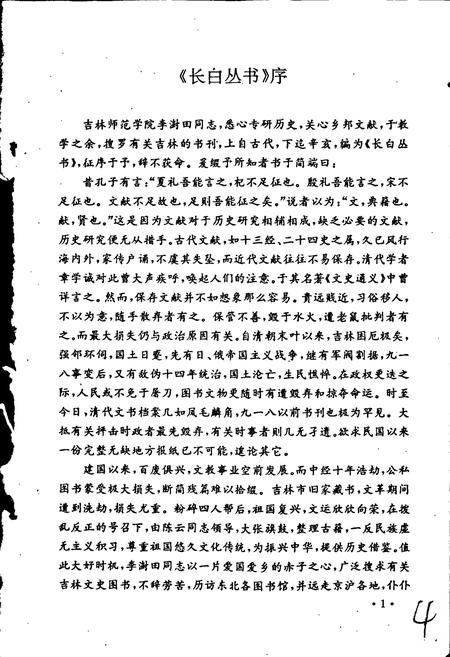 《长白丛书》序
吉林师范学院李澍田同志，悉心专研历史，关心乡邦文献，于教
学之余，搜罗有关吉林的书刊，上自古代，下迄辛亥，编为《长白丛
书》，征序于予，辞不获命。爰缀予所知者书于简端曰：
昔孔子有言：“夏礼吾能言之，杞不足征也。殷礼吾能言之，宋不
足征也。文献不足故也，足则吾能征之矣。”说者以为：“文，典籍也。
献，贤也。”这是因为文献对于历史研究相辅相成，缺乏必要的文献，
历史研究便无从措手。古代文献，如十三经、二十四史之属，久已风行
海内外，家传户诵，不虞其失坠，而近代文献往往不易保存。清代学者
章学诚对此曾大声疾呼，唤起人们的注意。于其名著《文史通义》中曾
详言之。然而，保存文献并不如想象那么容易。贵远贱近，习俗移人，
不以为意，随手散弃者有之。保管不善，毁于水火，遭老鼠批判者有
之。而最大损失仍与政治原因有关。自清朝末叶以来，吉林困厄极矣，
强邻环伺，国土日蹙，先有日、俄帝国主义战争，继有军阀割据，九一
八事变后，又有敌伪十四年统治，国土沦亡，生民憔悴。在政权更迭之
际，人民或不免于屠刀，图书文物更随时有遭毁弃和掠夺命运。时至
今日，清代文书档案几如凤毛麟角，九一八以前书刊也极为罕见。大
抵有关抨击时政者最先毁弃，有关时事者则几无孑遗。欲求民国以来
一份完整无缺地方报纸已不可能，遑论其它。
建国以来，百废俱兴，文教事业空前发展。而中经十年浩劫，公私
图书蒙受极大损失，断简残篇难以拾缀。吉林市旧家藏书，文革期间
遭到洗劫，损失尤重。粉碎四人帮后，祖国复兴，文运欣欣向荣，在拨
乱反正的号召下，由陈云同志领导，大张旗鼓，整理古籍，一反民族虚
无主义积习，尊重祖国悠久文化传统，为振兴中华，提供历史借鉴。值
此大好时机，李澍田同志以一片爱国爱乡的赤子之心，广泛搜求有关
吉林文史图书，不辞劳苦，历访东北各图书馆，并远走京沪各地，仆仆
·1·
4